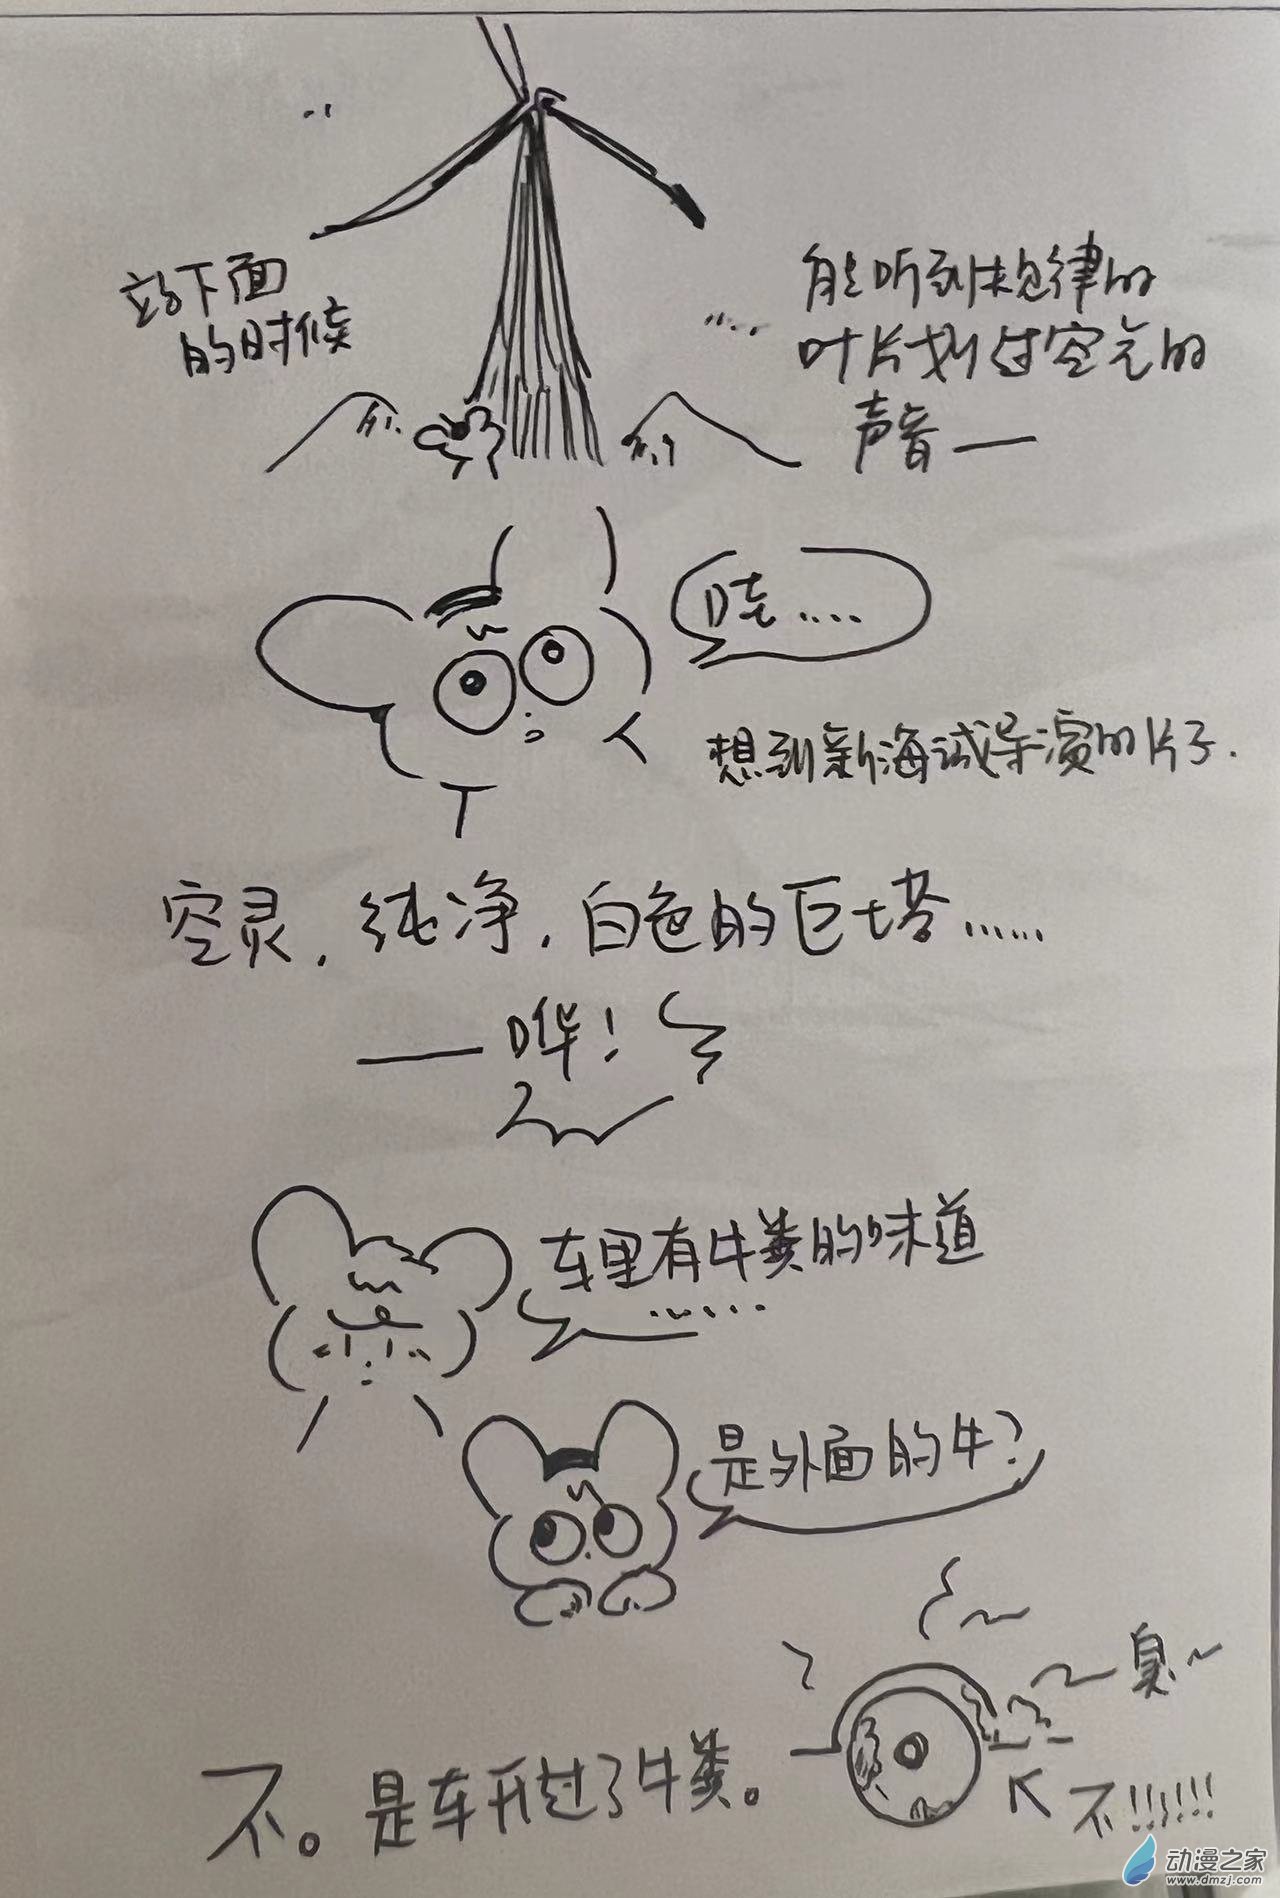 站下面
的时候
能听到规律的
叶片划过空气的
声音——
哇....
想到新海诚导演的片子.
空灵,纯净,白色的巨塔......
——哗!
车里有牛粪的味道
......
是外面的牛?
臭~
不。是车开过了牛粪。
不!!!!!!
动漫之家
www.dmzj.com